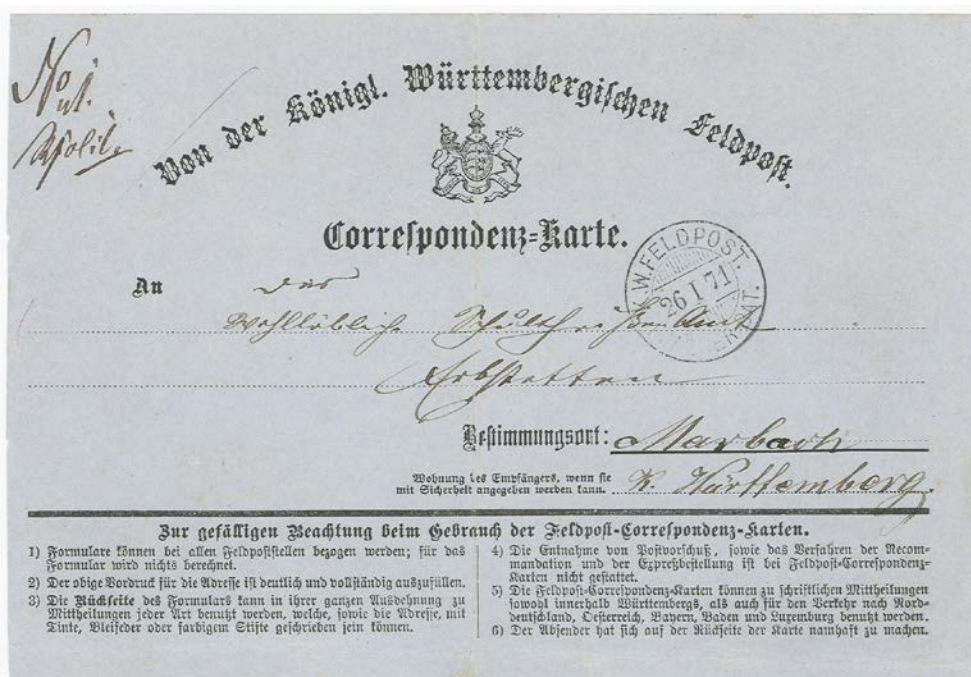 No 1.
Von der Königl. Württembergischen Feldpost.
Correspondenz-Karte.
K.W.FELDPOST.
26 I 71
An das
wohllöbliche Schultheißen Amt
Erbstetten
Bestimmungsort: Marbach
Wohnung des Empfängers, wenn sie
mit Sicherheit angegeben werden kann. K. Württemberg.
Zur gefälligen Beachtung beim Gebrauch der Feldpost-Correspondenz-Karten.
1) Formulare können bei allen Feldpoststellen bezogen werden; für das
Formular wird nichts berechnet.
2) Der obige Vordruck für die Adresse ist deutlich und vollständig auszufüllen.
3) Die Rückseite des Formulars kann in ihrer ganzen Ausdehnung zu
Mittheilungen jeder Art benutzt werden, welche, sowie die Adresse, mit
Tinte, Bleifeder oder farbigem Stifte geschrieben sein können.
4) Die Entnahme von Postvorschuß, sowie das Verfahren der Recom-
mandation und der Expreßbestellung ist bei Feldpost-Correspondenz-
Karten nicht gestattet.
5) Die Feldpost-Correspondenz-Karten können zu schriftlichen Mittheilungen
sowohl innerhalb Württembergs, als auch für den Verkehr nach Nord-
deutschland, Oesterreich, Bayern, Baden und Luxemburg benutzt werden.
6) Der Absender hat sich auf der Rückseite der Karte namhaft zu machen.